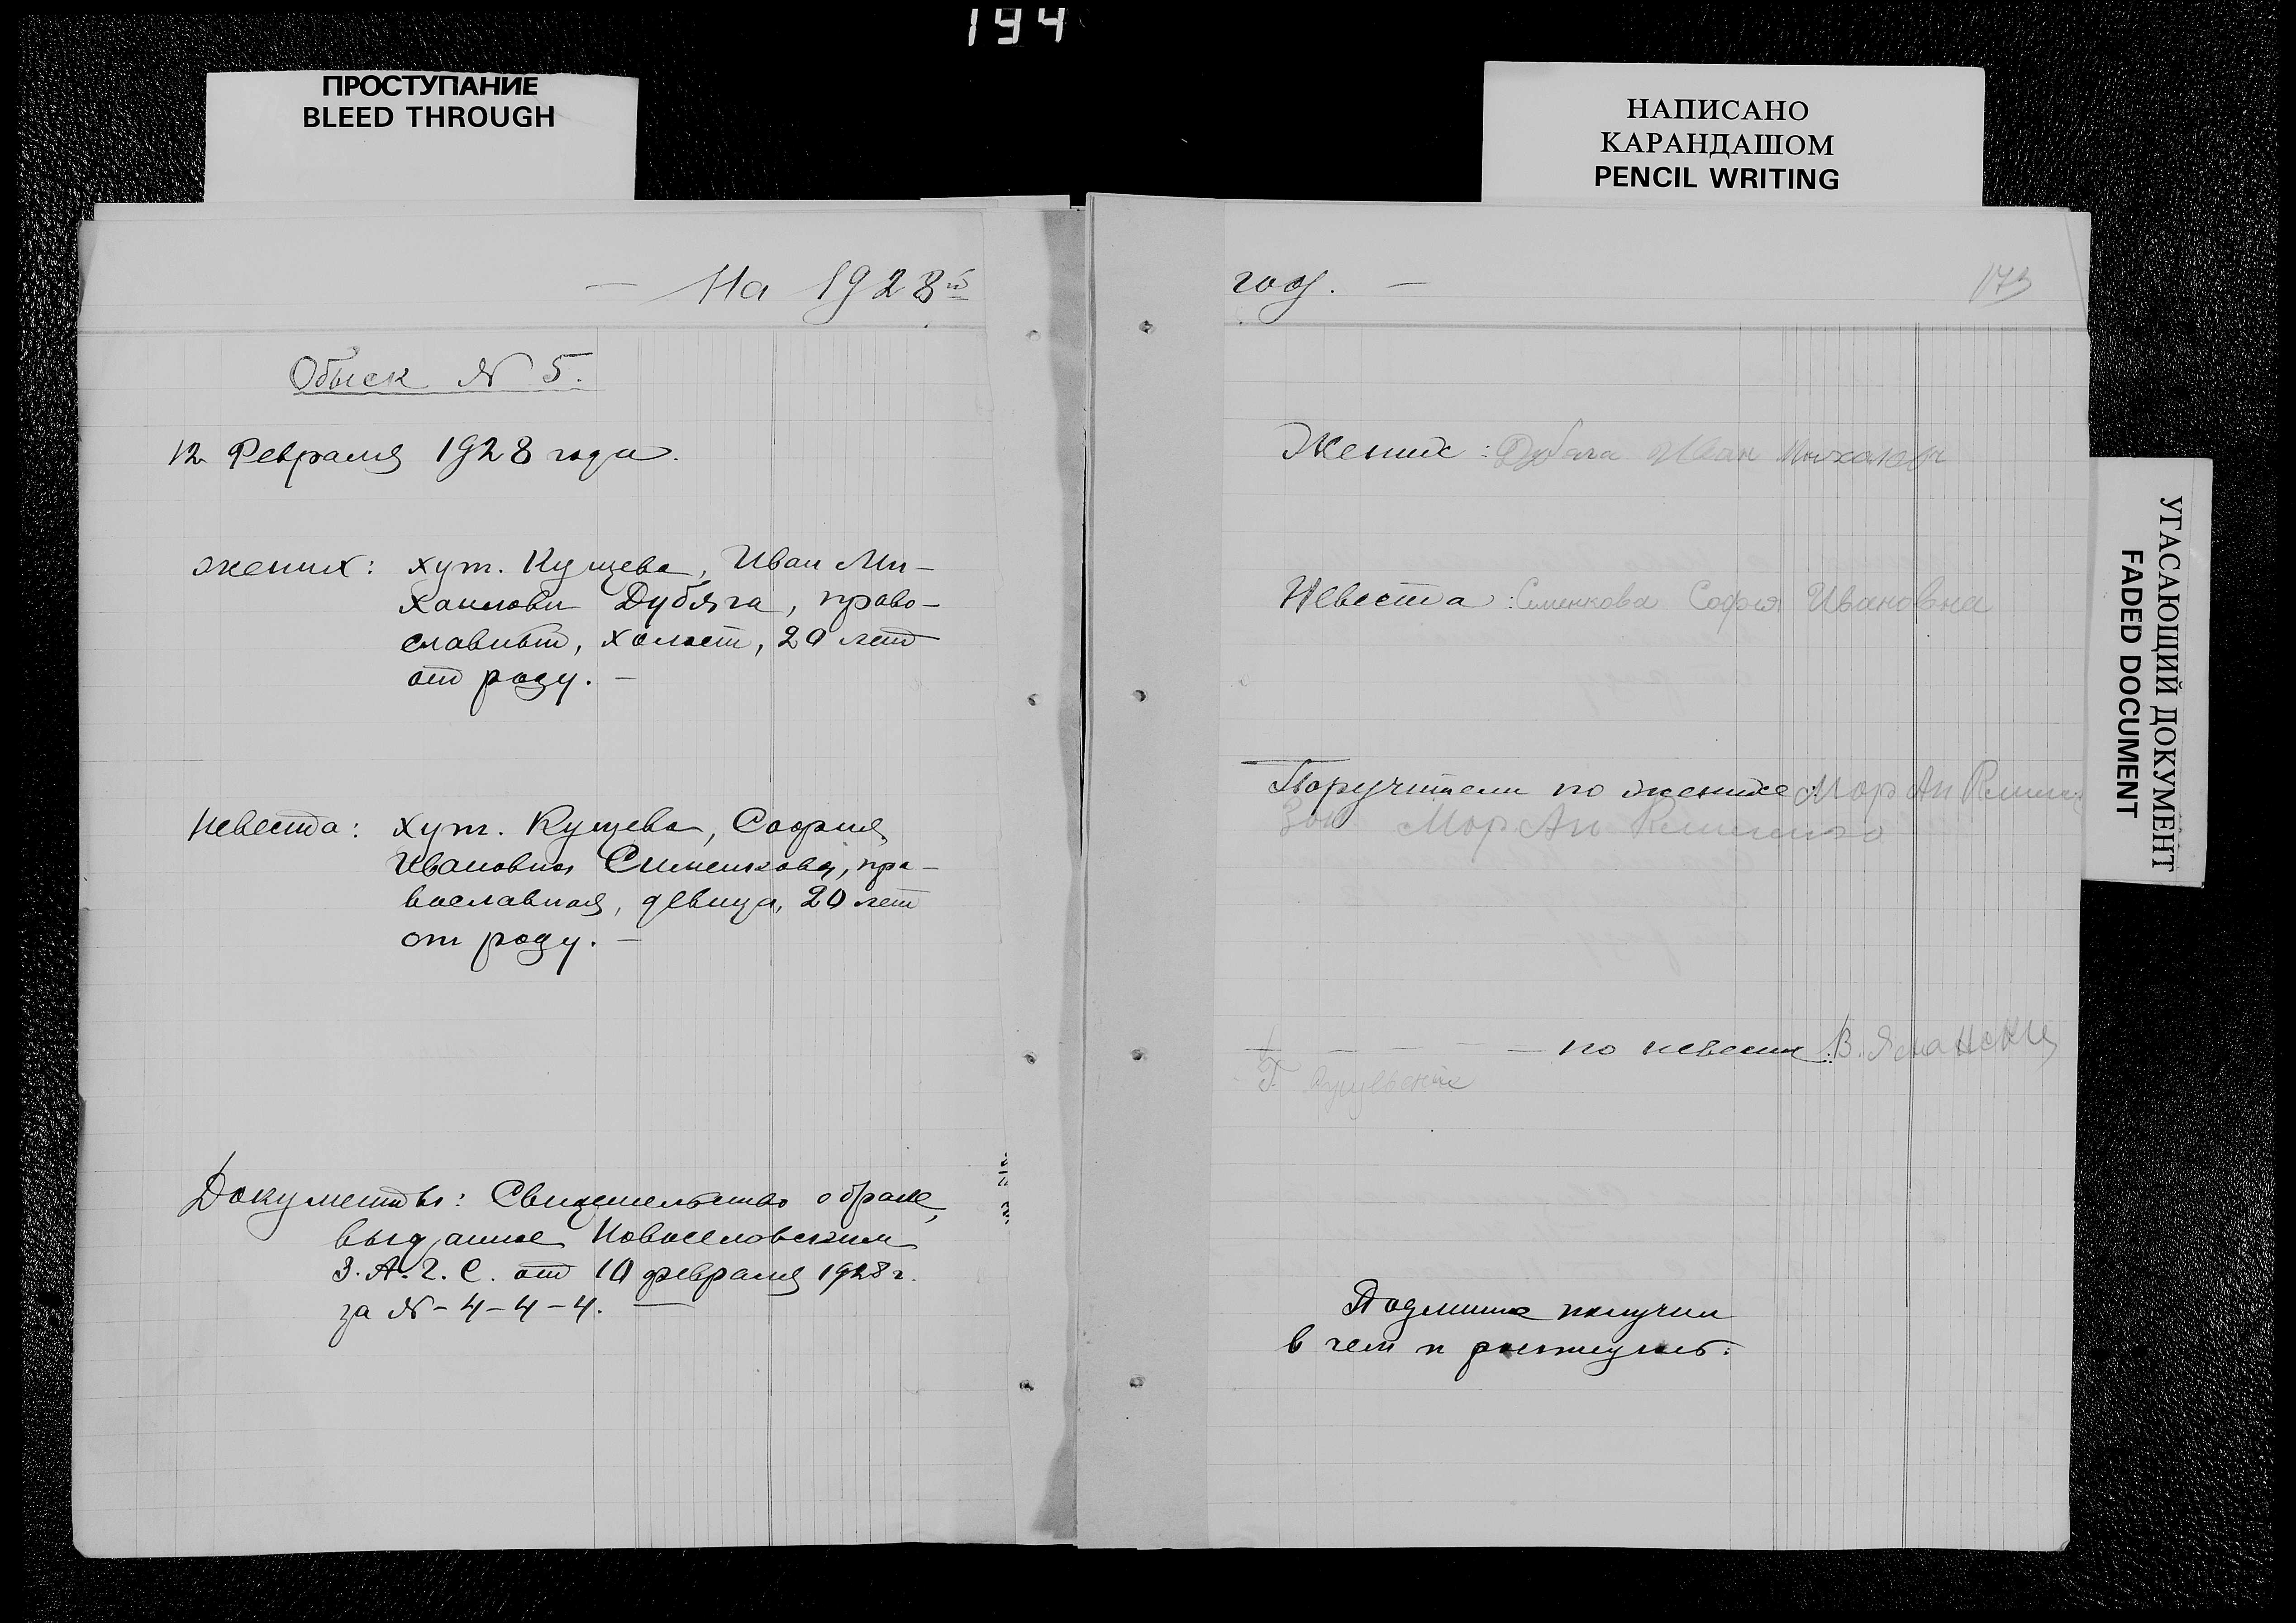 194
ПРОСТУПАНИЕ
BLEED THROUGH
НАПИСАНО
КАРАНДАШОМ
PENCIL WRITING
— На 1928й
Обыск № 5.
12 Февраля 1928 года.
жених: хут. Кущева, Иван Ми-
хаилович Дубяга, право-
славный, холост, 20 лет
от роду. —
Невеста: хут. Кущева, София
Ивановна Сименкова, пра-
вославная, девица, 20 лет
от роду. —
Документы: Свидетельство о браке,
выданное Новоселовским
З.А.Г.С. от 10 февраля 1928 г.
за № - 4 - 4 - 4. —
год. —
173
Жених: Дубяга Иван
Невеста: Сименкова София Ивановна
Поручители по женихе: Мор Ан
Мор Ан
— — — — — по невесте: В.
Г.
получил
в чем и
УГАСАЮЩИЙ ДОКУМЕНТ
FADED DOCUMENT